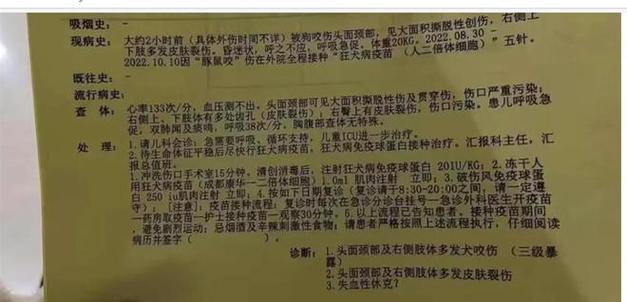 吸烟史：-
现病史：大约2小时前（具体外伤时间不详）被狗咬伤头面颈部，见大面积撕脱性创伤，右侧上
下肢多发皮肤裂伤。昏迷状，呼之不应，呼吸急促。体重20KG。2022.08.30 -
2022.10.10因“豚鼠咬”伤在外院全程接种“狂犬病疫苗（人二倍体细胞）”五针。
既往史：-
流行病史：
查 体：心率133次/分，血压测不出。头面颈部可见大面积撕脱伤及贯穿伤，伤口严重污染；
右侧上、下肢体有多处齿孔（皮肤裂伤）；右臀上有皮肤裂伤，伤口污染。患儿呼吸急
促，双肺闻及痰鸣，呼吸38次/分，胸腹部查体无特殊。
处 理：1.请儿科会诊：急需要呼吸、循环支持，儿童ICU进一步治疗。
2.待生命体征平稳后尽快行狂犬病疫苗，狂犬病免疫球蛋白接种治疗。汇报科主任，汇
报总值班。
1.冲洗伤口手术室15分钟，清创消毒后，注射狂犬病免疫球蛋白 20IU/KG；2.冻干人
用狂犬病疫苗（成都康华-二倍体细胞）1.0ml 肌肉注射 立即；3.破伤风免疫球蛋
白 250 iu肌肉注射 立即；4.按如下日期复诊（复诊请于8:30-20:00之间，请一定遵
守）；[注意]：疫苗接种流程：复诊时每次在急诊分诊台挂号—急诊外科医生开疫苗
—药房取疫苗—护士接种疫苗—观察30分钟。6.以上流程已告知患者。接种疫苗期间
，避免剧烈运动；忌烟酒及辛辣刺激性食物；请患者严格按照上述流程执行，仔细阅读
病历并签字（ ）。
诊断：1.头面颈部及右侧肢体多发犬咬伤（三级暴
露）
2.头面颈部及右侧肢体多发皮肤裂伤
3.失血性休克？